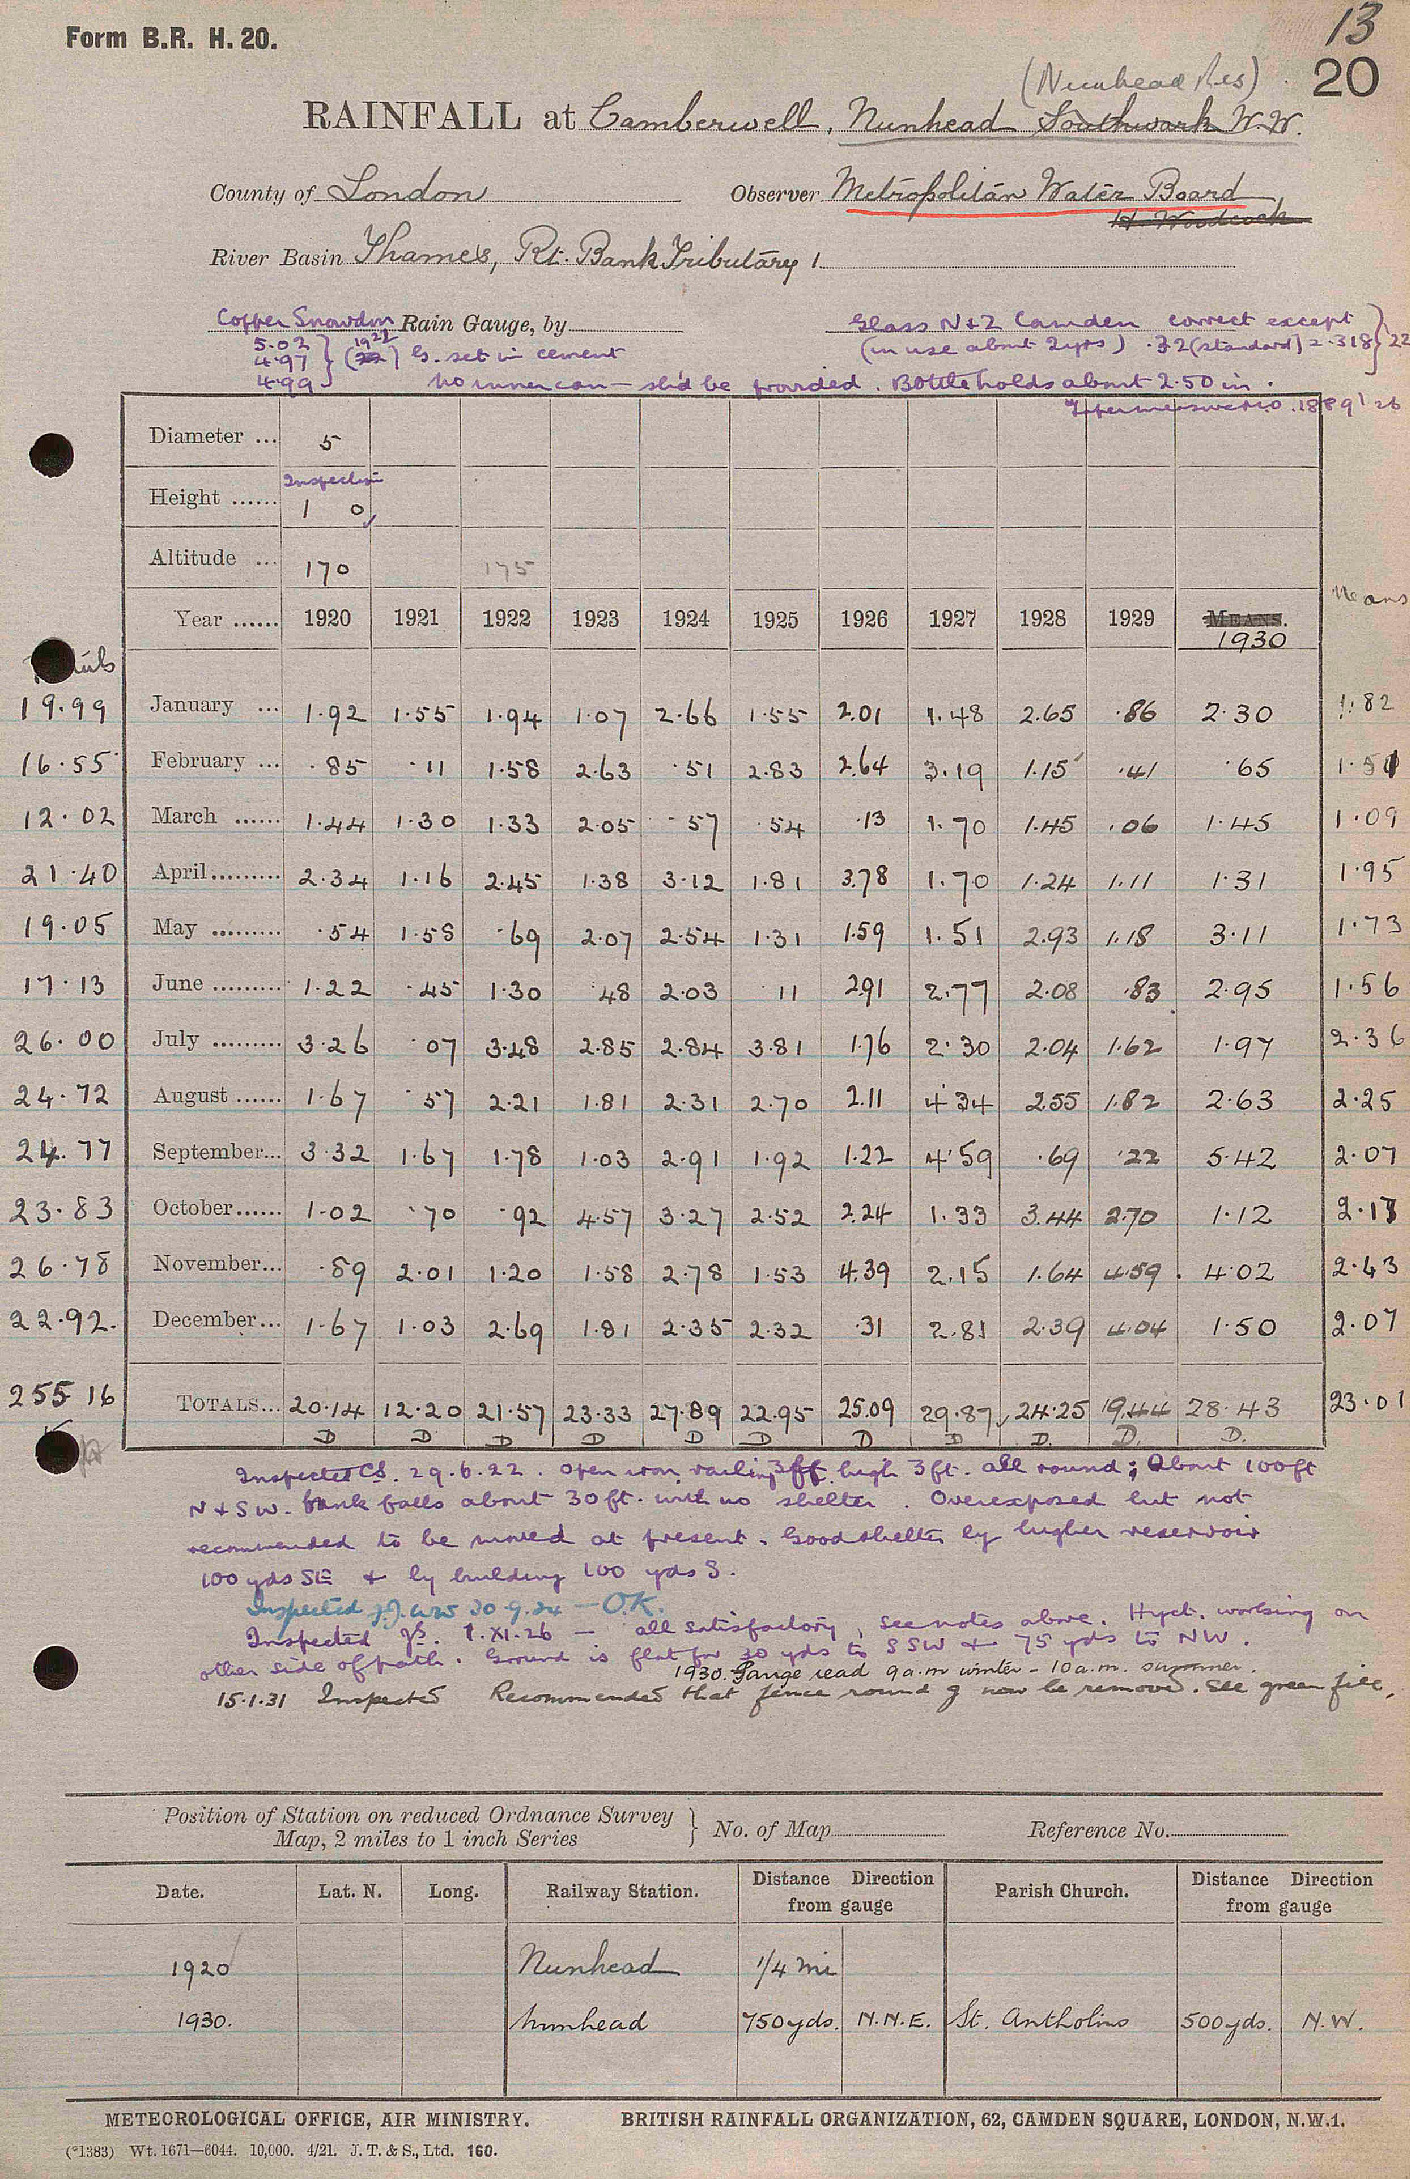 Form B.R. H. 20.
13
20
(Nunhead Res)
RAINFALL at Camberwell, Nunhead Southwark W.W.
County of London Observer Metropolitan Water Board
H. Woodcock
River Basin Thames, Rt. Bank Tributary 1
Copper Snowdon Rain Gauge, by Glass N & Z Camden correct except
5.02 1922 (in use about 2 yrs) .32 (standard) = .318 } 22
4.97 } (22) G. set in cement
4.99 No inner can — sh'd be provided. Bottle holds about 2.50 in.
Diameter ... 5
Inspection
Height ...... 1 0
Altitude ... 170 175
Year ...... 1920 1921 1922 1923 1924 1925 1926 1927 1928 1929 MEANS. 1930 Means
19.99 January ... 1.92 1.55 1.94 1.07 2.66 1.55 2.01 1.48 2.65 .86 2.30 1.82
16.55 February ... .85 .11 1.58 2.63 .51 2.83 2.64 3.19 1.15 .41 .65 1.51
12.02 March ...... 1.44 1.30 1.33 2.05 .57 .54 .13 1.70 1.45 .06 1.45 1.09
21.40 April......... 2.34 1.16 2.45 1.38 3.12 1.81 3.78 1.70 1.24 1.11 1.31 1.95
19.05 May ......... .54 1.58 .69 2.07 2.54 1.31 1.59 1.51 2.93 1.18 3.11 1.73
17.13 June ......... 1.22 .45 1.30 .48 2.03 .11 2.91 2.77 2.08 .83 2.95 1.56
26.00 July ......... 3.26 .07 3.48 2.85 2.84 3.81 1.76 2.30 2.04 1.62 1.97 2.36
24.72 August ...... 1.67 .57 2.21 1.81 2.31 2.70 2.11 4.34 2.55 1.82 2.63 2.25
24.77 September... 3.32 1.67 1.78 1.03 2.91 1.92 1.22 4.59 .69 .22 5.42 2.07
23.83 October...... 1.02 .70 .92 4.57 3.27 2.52 2.24 1.33 3.44 2.70 1.12 2.17
26.78 November... .89 2.01 1.20 1.58 2.78 1.53 4.39 2.15 1.64 4.59 4.02 2.43
22.92. December... 1.67 1.03 2.69 1.81 2.35 2.32 .31 2.81 2.39 4.04 1.50 2.07
255 16 TOTALS... 20.14 12.20 21.57 23.33 27.89 22.95 25.09 29.87 24.25 19.44 28.43 23.01
D D D D D D D D D. D. D.
Inspected CS. 29.6.22. open iron railing 3ft high 3ft. all round; About 100ft
N & SW. bank falls about 30ft. with no shelter. Overexposed but not
recommended to be moved at present. Good shelter by higher reservoir
100 yds SE & by building 100 yds S.
Inspected 30.9.24 — O.K.
Inspected 1.XI.26 — all satisfactory, see notes above. Hyet. working on
other side of path. Ground is flat for 30 yds to SSW & 75 yds to NW.
1930. Gauge read 9 a.m winter – 10 a.m. summer.
15.1.31 Inspected Recommended that fence round g now be removed. See green file.
Position of Station on reduced Ordnance Survey
Map, 2 miles to 1 inch Series } No. of Map Reference No.
Date. Lat. N. Long. Railway Station. Distance Direction from gauge Parish Church. Distance Direction from gauge
1920 Nunhead 1/4 mi
1930. Nunhead 750 yds. N.N.E. St. Antholins 500 yds. N.W.
METEOROLOGICAL OFFICE, AIR MINISTRY. BRITISH RAINFALL ORGANIZATION, 62, CAMDEN SQUARE, LONDON, N.W.1.
(*1383) Wt. 1671—6044. 10,000. 4/21. J. T. & S., Ltd. 160.